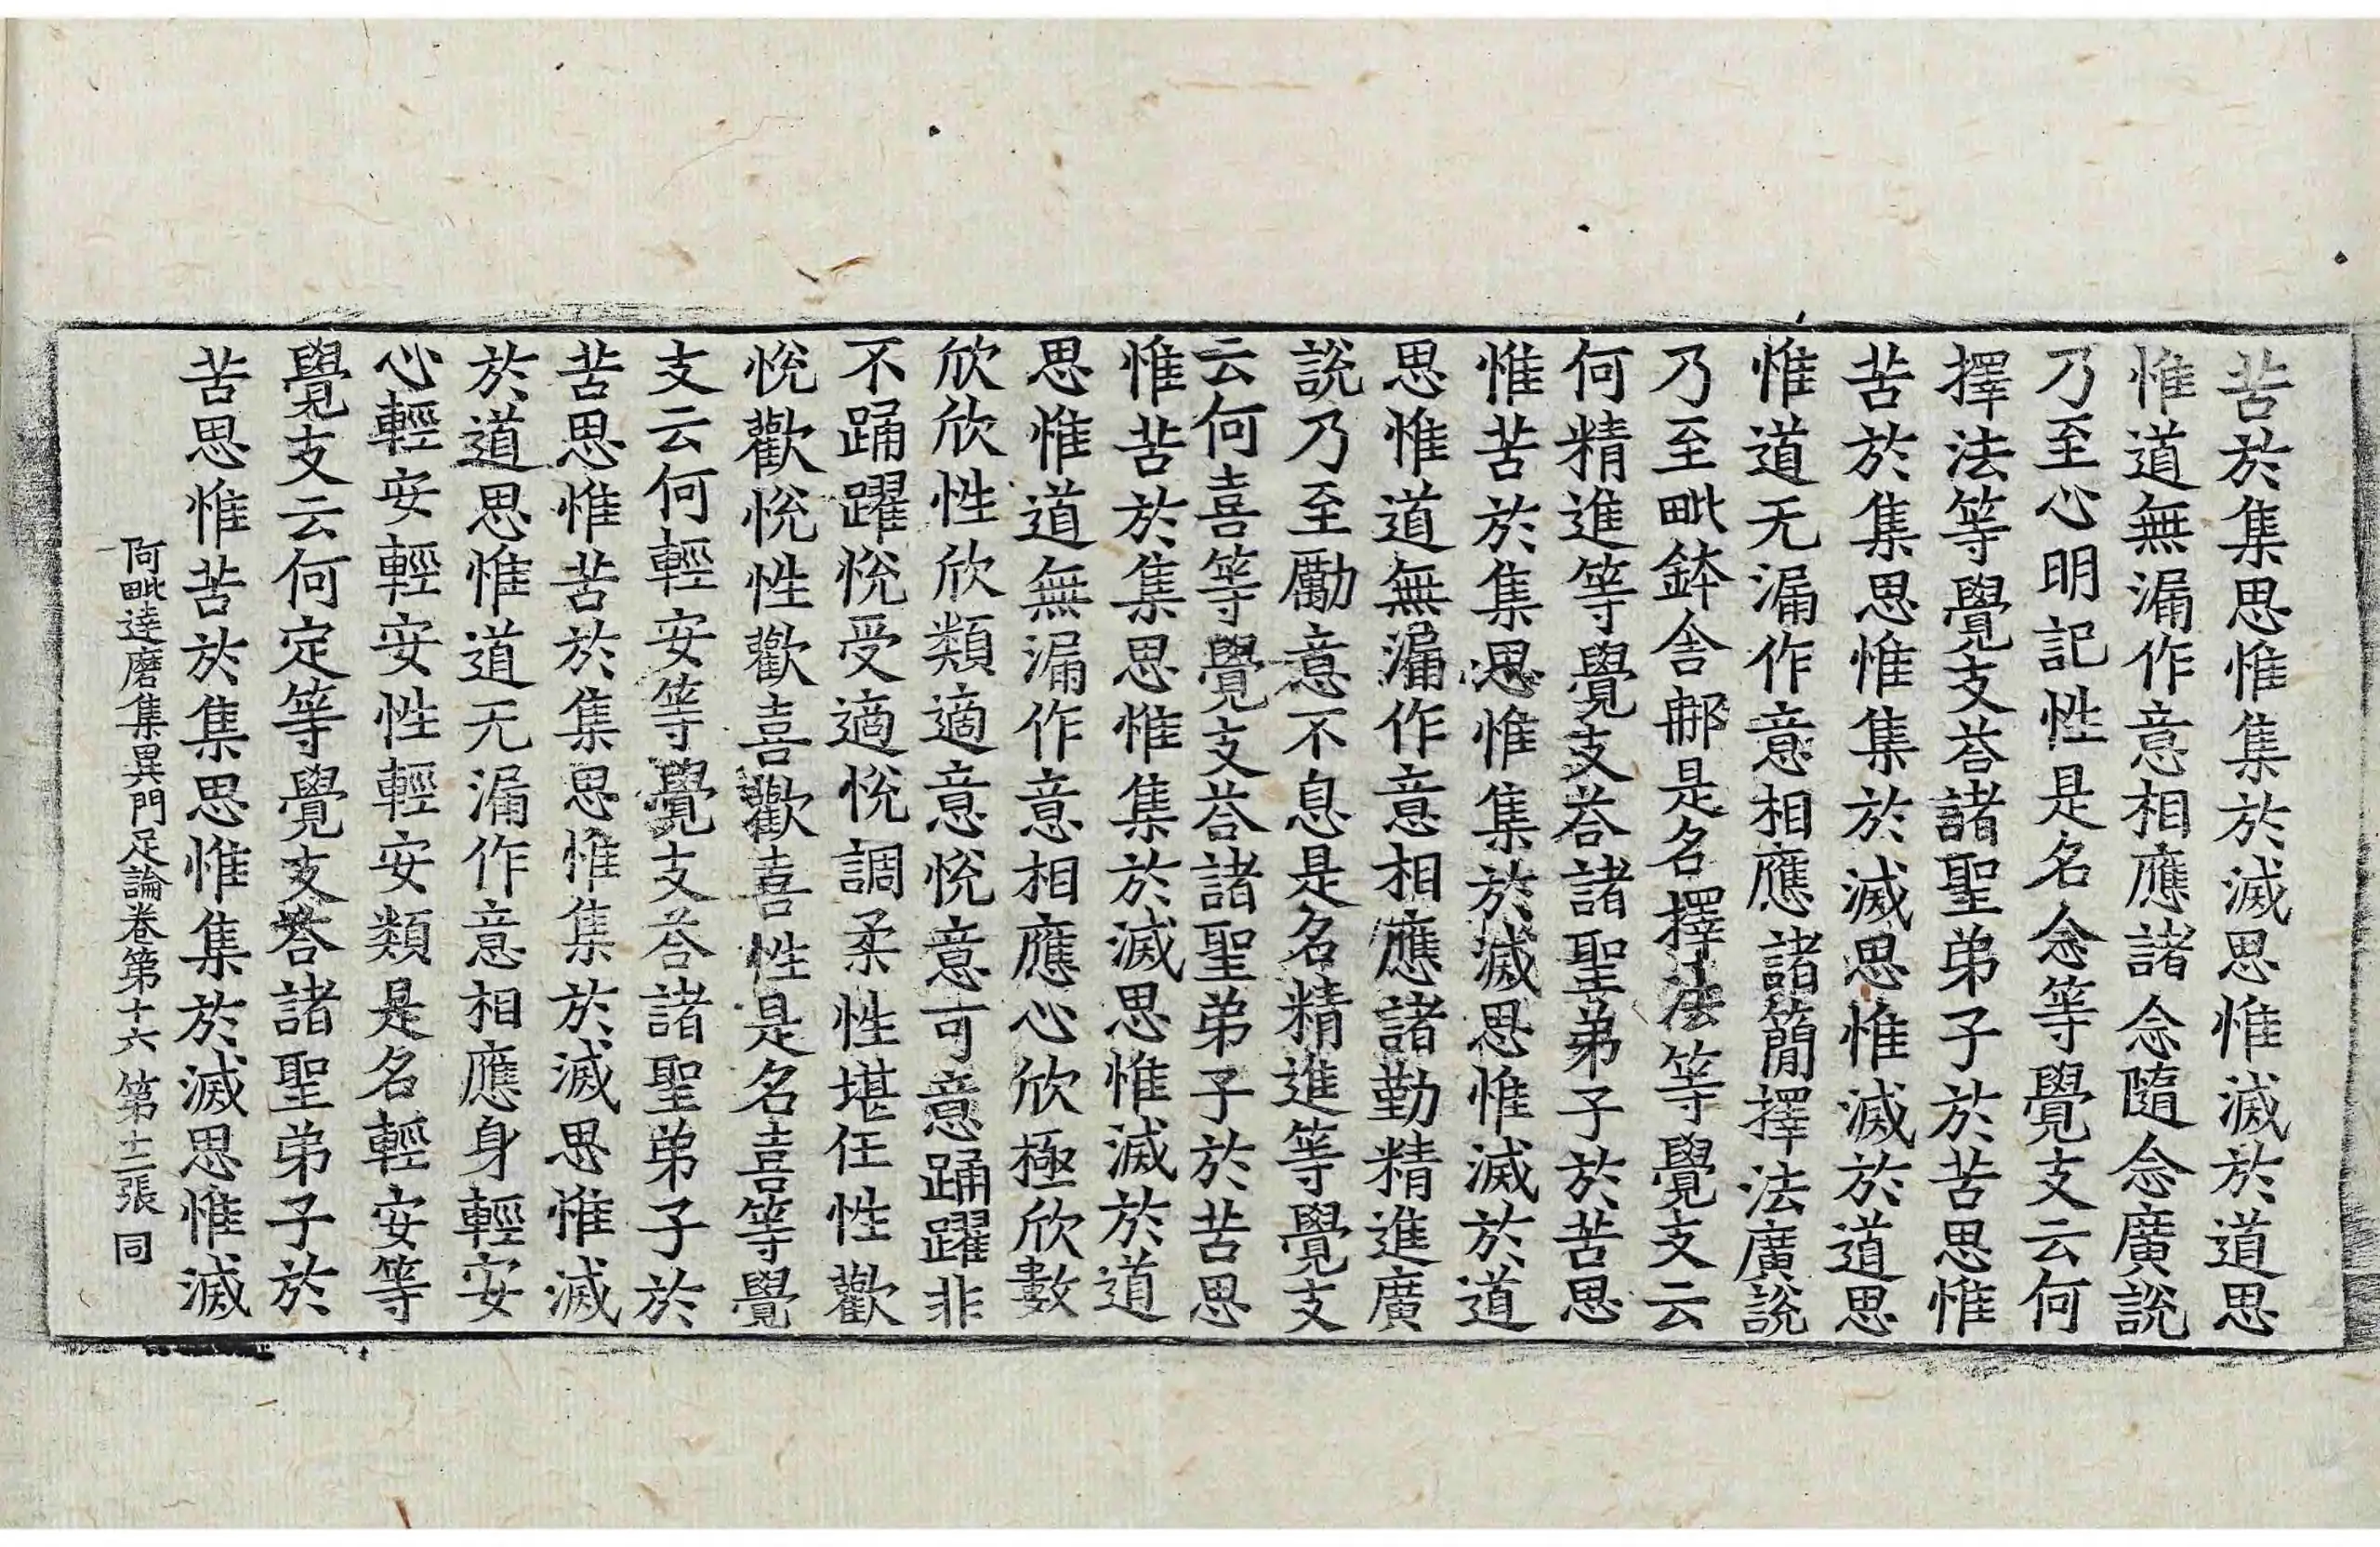 苦於集思惟集於滅思惟滅於道思
惟道無漏作意相應諸念隨念廣說
乃至心明記性是名念等覺支云何
擇法等覺支荅諸聖弟子於苦思惟
苦於集思惟集於滅思惟滅於道思
惟道无漏作意相應諸簡擇法廣說
乃至毗鉢舍那是名擇法等覺支云
何精進等覺支荅諸聖弟子於苦思
惟苦於集思惟集於滅思惟滅於道
思惟道無漏作意相應諸勤精進廣
說乃至勵意不息是名精進等覺支
云何喜等覺支荅諸聖弟子於苦思
惟苦於集思惟集於滅思惟滅於道
思惟道無漏作意相應心欣極欣數
欣欣性欣類適意悅意可意踊躍非
不踊躍悅受適悅調柔性堪任性歡
悅歡悅性歡喜歡喜性是名喜等覺
支云何輕安等覺支荅諸聖弟子於
苦思惟苦於集思惟集於滅思惟滅
於道思惟道无漏作意相應身輕安
心輕安輕安性輕安類是名輕安等
覺支云何定等覺支荅諸聖弟子於
苦思惟苦於集思惟集於滅思惟滅
阿毗達磨集異門足論卷第十六 第十二張 同